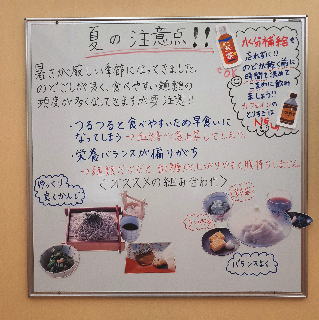 夏の注意点!!
暑さが厳しい季節になってきました
のどごしが良く、食べやすい麺類の
頻度が多くなってきますが要注意!!
・つるつると食べやすいため早食いに
なってしまう→血糖値が急上昇してしまう!!
・栄養バランスが偏りがち
〈オススメの組み合わせ〉
ゆっくり
良くかんで
バランスよく
水分補給も
忘れずに!!
のどが乾く前に
時間を決めて
こまめに飲み
ましょう!!
カフェインの
とりすぎは
NG
OK